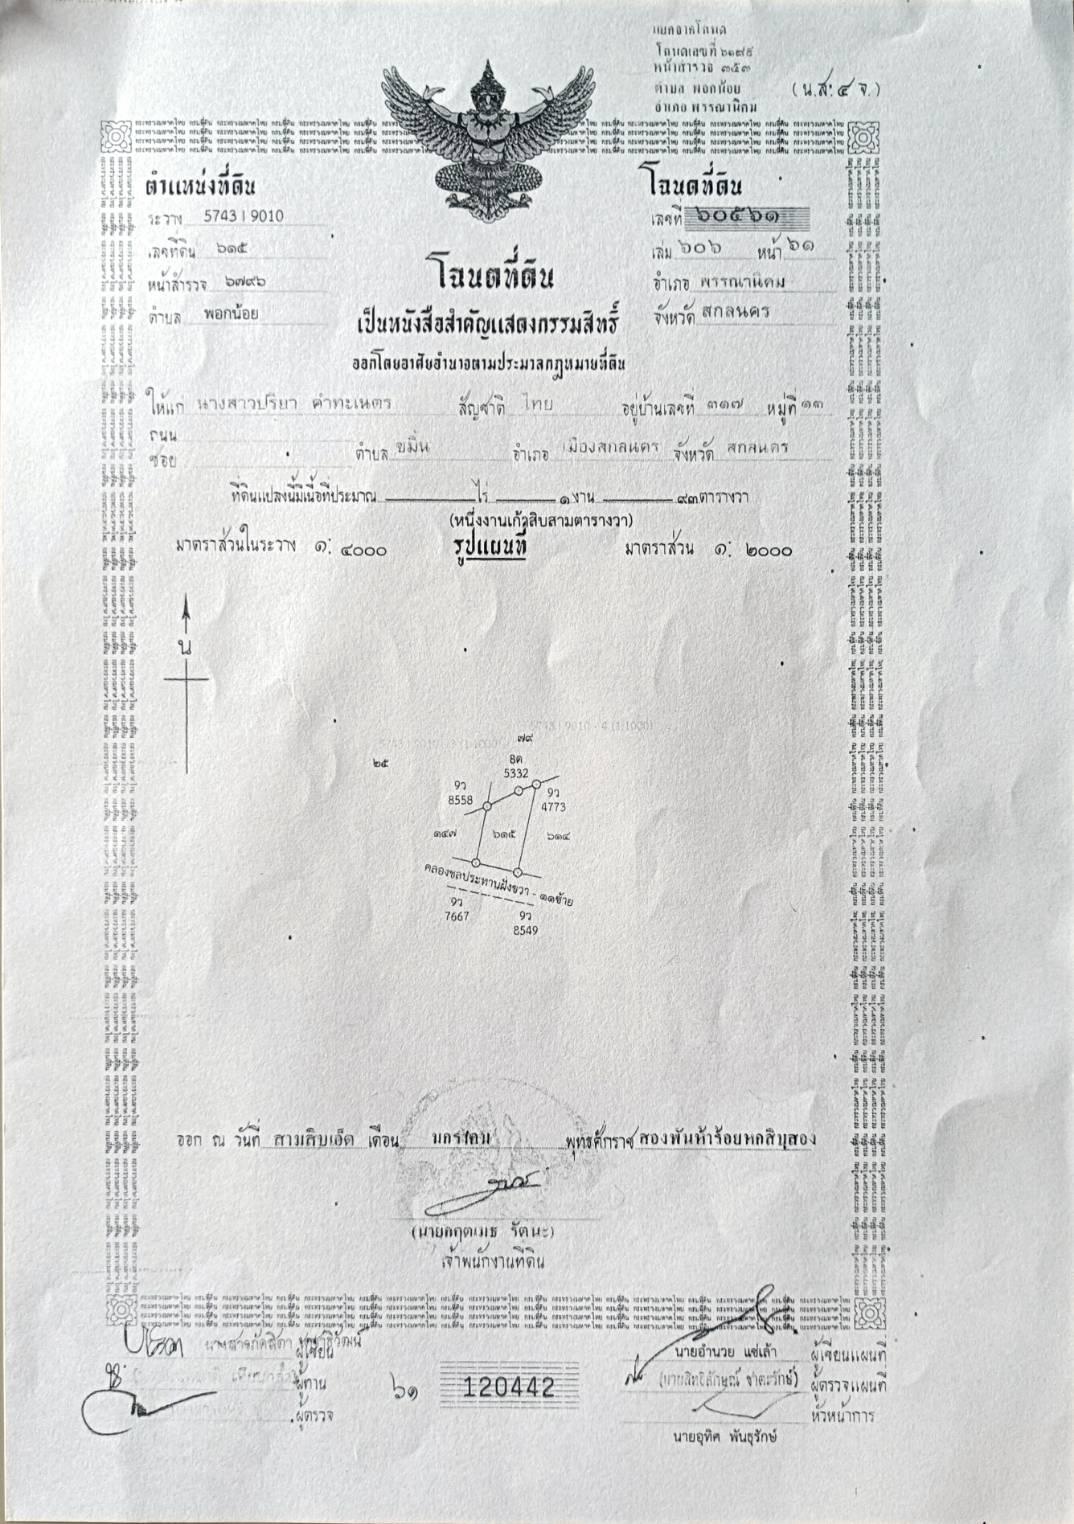 แยกจากโฉนด
โฉนดเลขที่ ๖๑๙๕
หน้าสำรวจ ๓๕๓
ตำบล พอกน้อย
อำเภอ พรรณานิคม
(น.ส. ๔ จ.)
ตำแหน่งที่ดิน
ระวาง 5743 I 9010
เลขที่ดิน ๖๑๕
หน้าสำรวจ ๖๗๙๖
ตำบล พอกน้อย
โฉนดที่ดิน
เลขที่ ๖๐๕๖๑
เล่ม ๖๐๖ หน้า ๖๑
อำเภอ พรรณานิคม
จังหวัด สกลนคร
โฉนดที่ดิน
เป็นหนังสือสำคัญแสดงกรรมสิทธิ์
ออกโดยอาศัยอำนาจตามประมวลกฎหมายที่ดิน
ให้แก่ นางสาวปริยา คำทะเนตร สัญชาติ ไทย อยู่บ้านเลขที่ ๓๑๗ หมู่ที่ ๑๓
ถนน
ซอย
ตำบล ขมิ้น อำเภอ เมืองสกลนคร จังหวัด สกลนคร
ที่ดินแปลงนี้มีเนื้อที่ประมาณ ไร่ ๑ งาน ๙๓ ตารางวา
(หนึ่งงานเก้าสิบสามตารางวา)
มาตราส่วนในระวาง ๑: ๔๐๐๐ รูปแผนที่ มาตราส่วน ๑: ๒๐๐๐
น
5743 I 9010 - 4 (1:1000)
๗๙
๒๕
8ต
5332
9ว
8558
9ว
4773
๑๔๗
๖๑๕
๖๑๔
คลองชลประทานฝั่งขวา - ๑๑ซ้าย
9ว
7667
9ว
8549
ออก ณ วันที่ สามสิบเอ็ด เดือน มกราคม พุทธศักราช สองพันห้าร้อยหกสิบสอง
(นายกฤตเมธ รัตนะ)
เจ้าพนักงานที่ดิน
ผู้เขียน
ผู้ทาน
ผู้ตรวจ
๖๑
120442
นายอำนวย แซ่เล้า ผู้เขียนแผนที่
ผู้ตรวจแผนที่
หัวหน้าการ
นายอุทิศ พันธุรักษ์